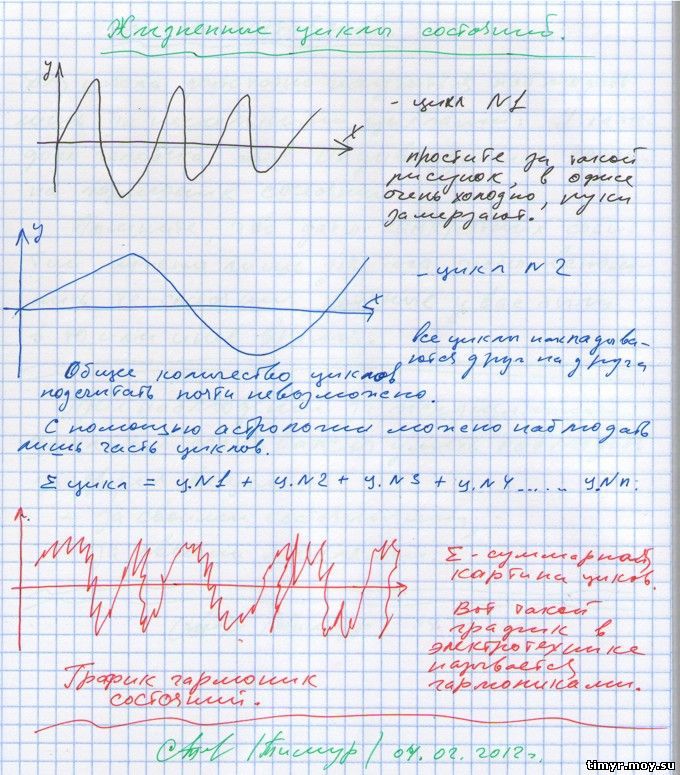 Жизненные циклы состояний.
y
x
- цикл N1
простите за такой
рисунок, в офисе
очень холодно, руки
замерзают.
y
x
- цикл N2
все циклы накладыва-
ются друг на друга
Общее количество циклов
подсчитать почти невозможно.
С помощью астрологии можно наблюдать
лишь часть циклов.
Σ цикл = ц.N1 + ц.N2 + ц.N3 + ц.N4 ...... ц.Nn.
Σ - суммарная
картина циклов.
Вот такой
график в
электротехнике
называется
гармониками.
График гармоник
состояний.
/Тимур/ 04.02.2012г.
timyr.moy.su